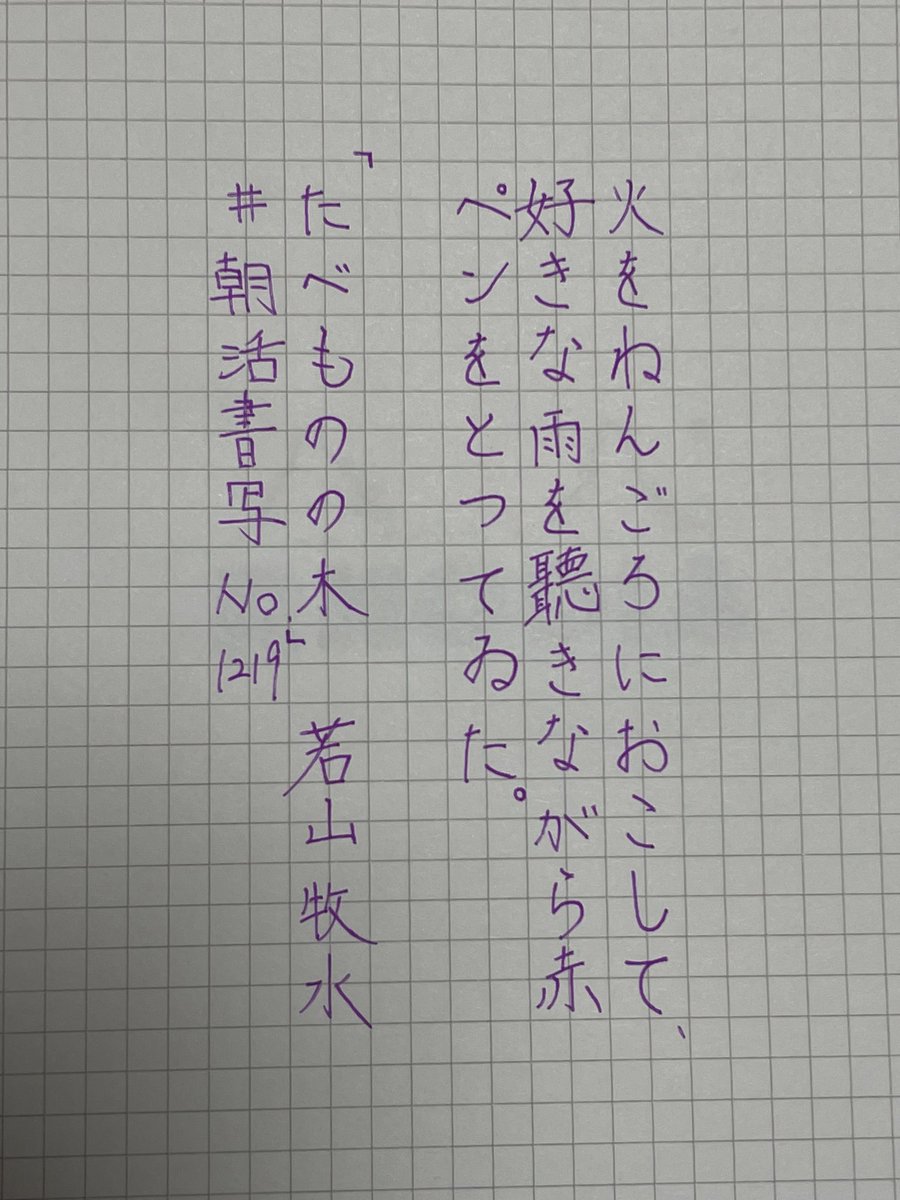 火をねんごろにおこして、
好きな雨を聴きながら赤
ペンをとつてゐた。
「たべものの木」 若山牧水
#朝活書写No.1219